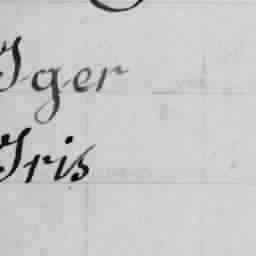 Iger
Iris